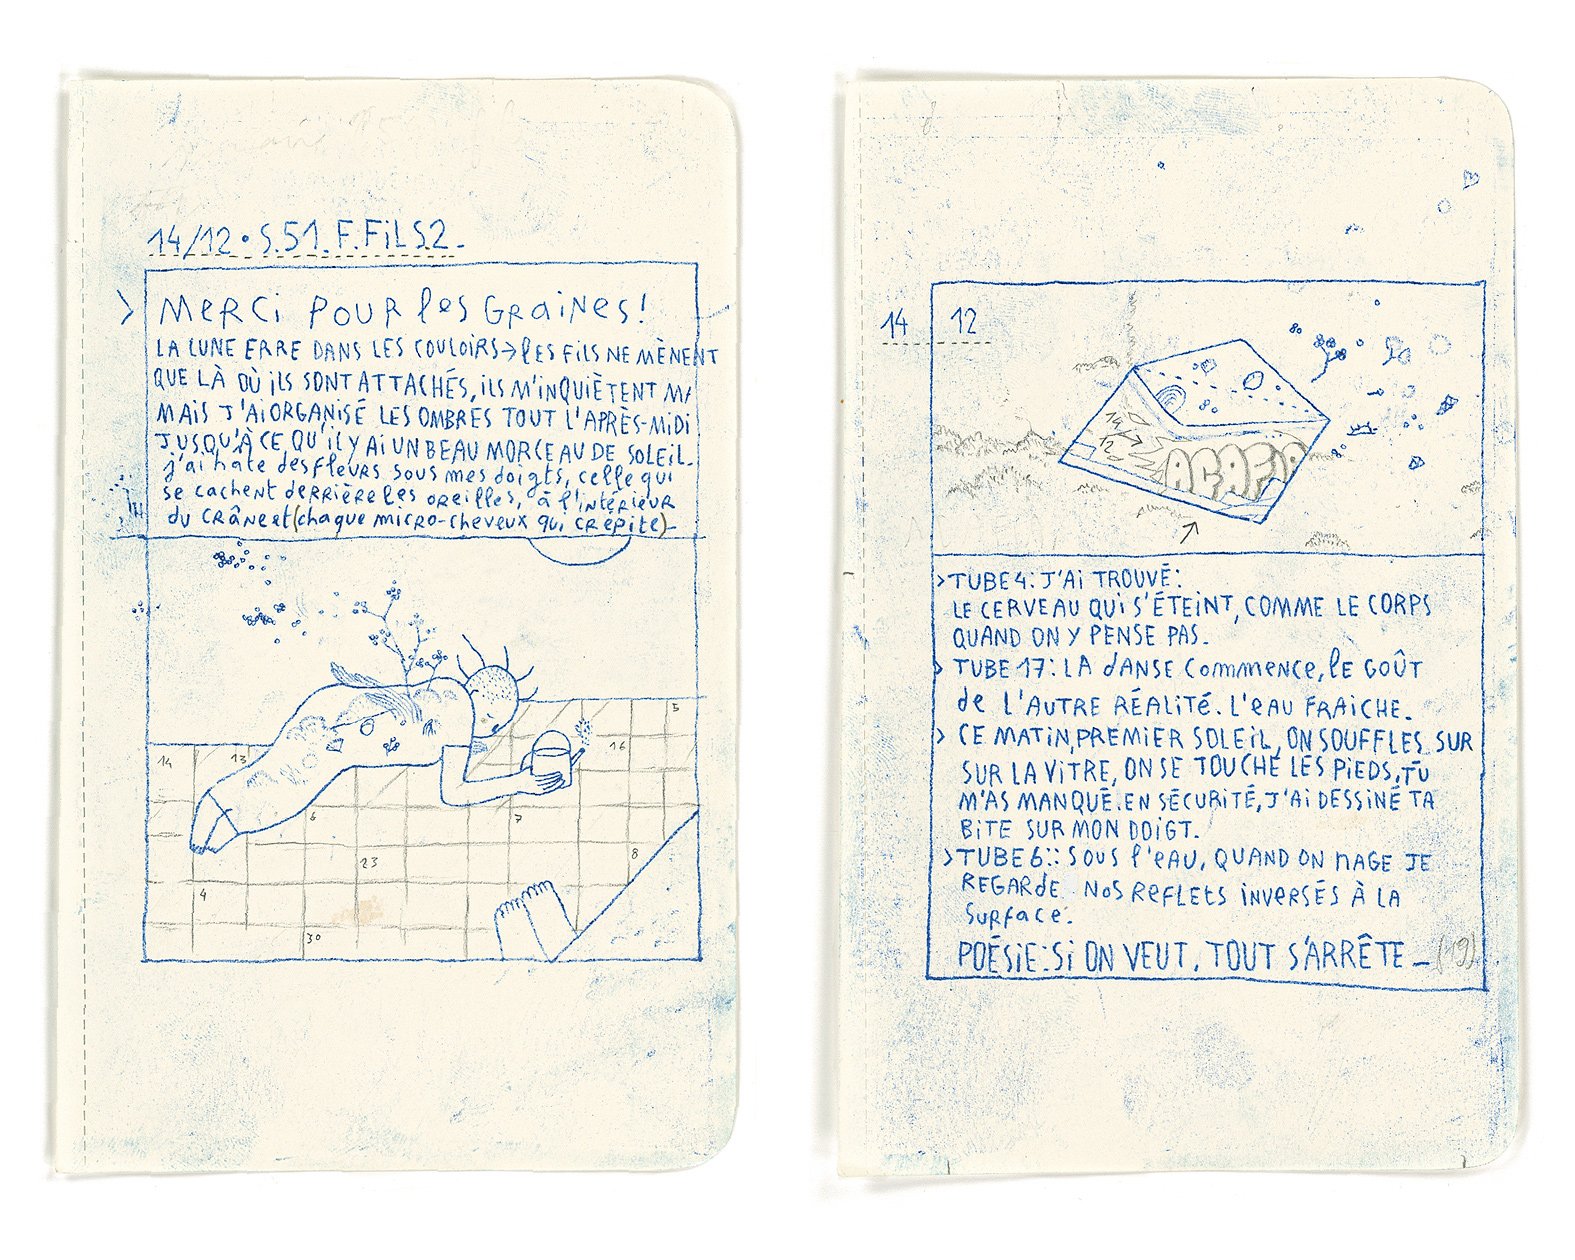 14/12 • S.51. F.FiLS.2_
> MERCi POUR les GRAiNes!
LA LUNE ERRE DANS LES COULOiRS→lES FiLS NE MÈNENT
QUE LÀ OÙ iLS SONT ATTACHÉS, iLS M'iNQUiÈTENT MA
MAiS J'Ai ORGANiSÉ LES OMBRES TOUT L'APRÈS-MiDi
JUSQU'À CE QU'iL Y Ai UN BEAU MORCEAU DE SOLEiL.
j'ai hate des fleurs sous mes doigts, celle qui
se cachent derrière les oreilles, à l'intérieur
du CRÂNe et (chaque micro-cheveux qui crepite)_
5
16
14
13
6
7
23
8
4
30
14 12
14 →
12
> TUBE 4: J'Ai TROUVÉ:
LE CERVEAU QUi S'ÉTEiNT, COMME LE CORPS
QUAND ON Y PENSE PAS.
> TUBE 17: LA dANSE Commence, le GOÛT
de L'AUTRE RÉALiTÉ. L'eAU FRAiCHE.
> CE MATiN, PREMiER SOLEiL, ON SOUFFLES SUR
SUR LA ViTRE, ON SE TOUCHE LES PiEDS, TU
M'AS MANQUÉ. EN SÉCURiTÉ, J'Ai DESSiNÉ TA
BiTE SUR MON DOiGT.
> TUBE 6:: SOUS l'eAU, QUAND ON NAGE JE
REGARde NOS Reflets iNVERSÉS À LA
SURface.
POÉSiE: Si ON VEUT, TOUT S'ARRÊTE _ (19)